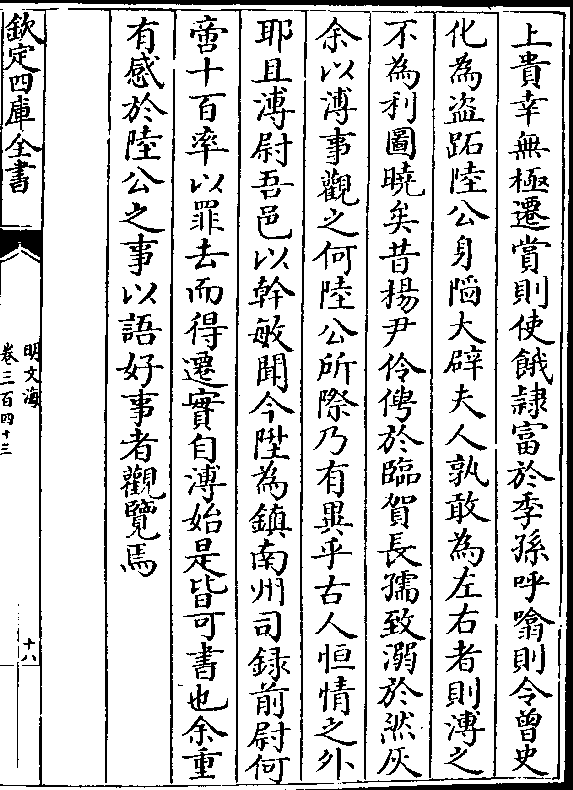 上貴幸無極遷賞則使餓隷富於季孫呼噏則令曾史
化為盗跖陸公身陷大辟夫人孰敢為左右者則溥之
不為利圖曉矣昔楊尹伶俜於臨賀長孺致溺於然灰
余以溥事觀之何陸公所際乃有異乎古人恒情之外
耶且溥尉吾邑以幹敏聞今陞為鎮南州司録前尉何
啻十百率以罪去而得遷實自溥始是皆可書也余重
有感於陸公之事以語好事者觀覽焉
欽定四庫全書
明文海
卷三百四十三
十八